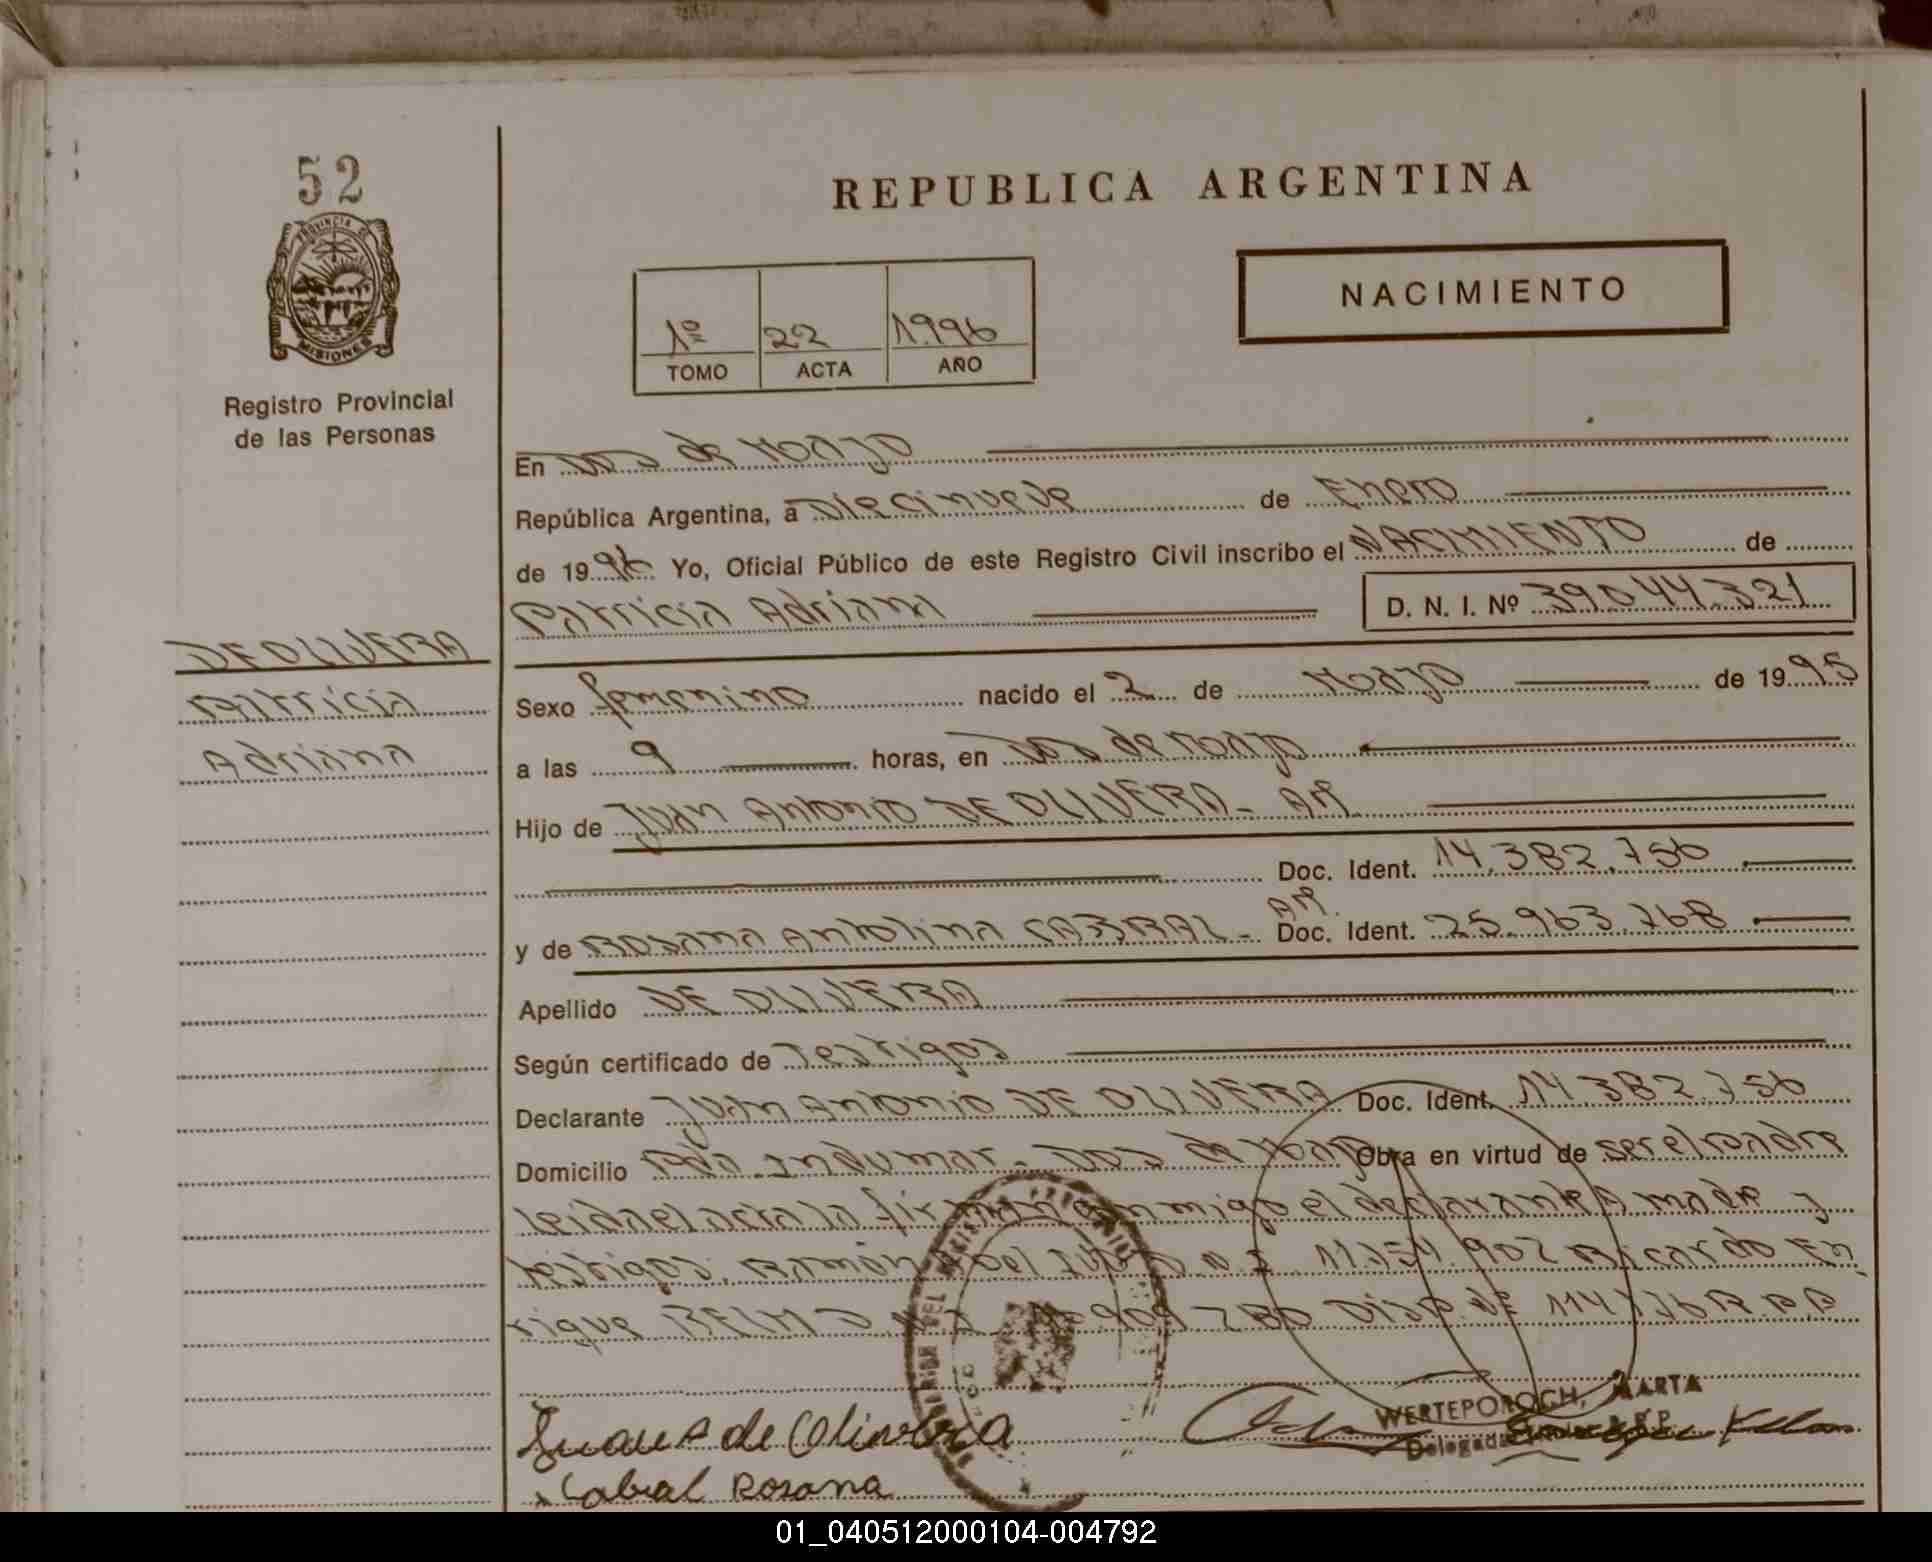 52
REPUBLICA ARGENTINA
PROVINCIA DE
MISIONES
Registro Provincial
de las Personas
NACIMIENTO
1º 22 1.996
TOMO ACTA AÑO
En Dos de Mayo
República Argentina, a Diecinueve de Enero
de 1996 Yo, Oficial Público de este Registro Civil inscribo el NACIMIENTO de
Patricia Adriana D. N. I. Nº 39.044.321
DE OLIVERA
Patricia
Adriana
Sexo femenino nacido el 2 de Mayo de 1995
a las 9 horas, en Dos de Mayo
Hijo de Juan Antonio DE OLIVERA - Ar
Doc. Ident. 14.382.756
y de Rosana Antolina CABRAL - Ar. Doc. Ident. 25.963.768
Apellido DE OLIVERA
Según certificado de Testigos
Declarante Juan Antonio DE OLIVERA Doc. Ident. 14.382.756
Domicilio Pda. Indumar - Dos de Mayo Obra en virtud de ser el padre
leida el acta la firman conmigo el declarante madre y
testigos: Ramón D.N.I. 11.154.902 Ricardo En
rique 909 280 Disp. Nº 114/76 R.P.P
WERTEPOROCH, MARTA
Delegada
Juan A de Olivera
Cabral Rosana
01_040512000104-004792